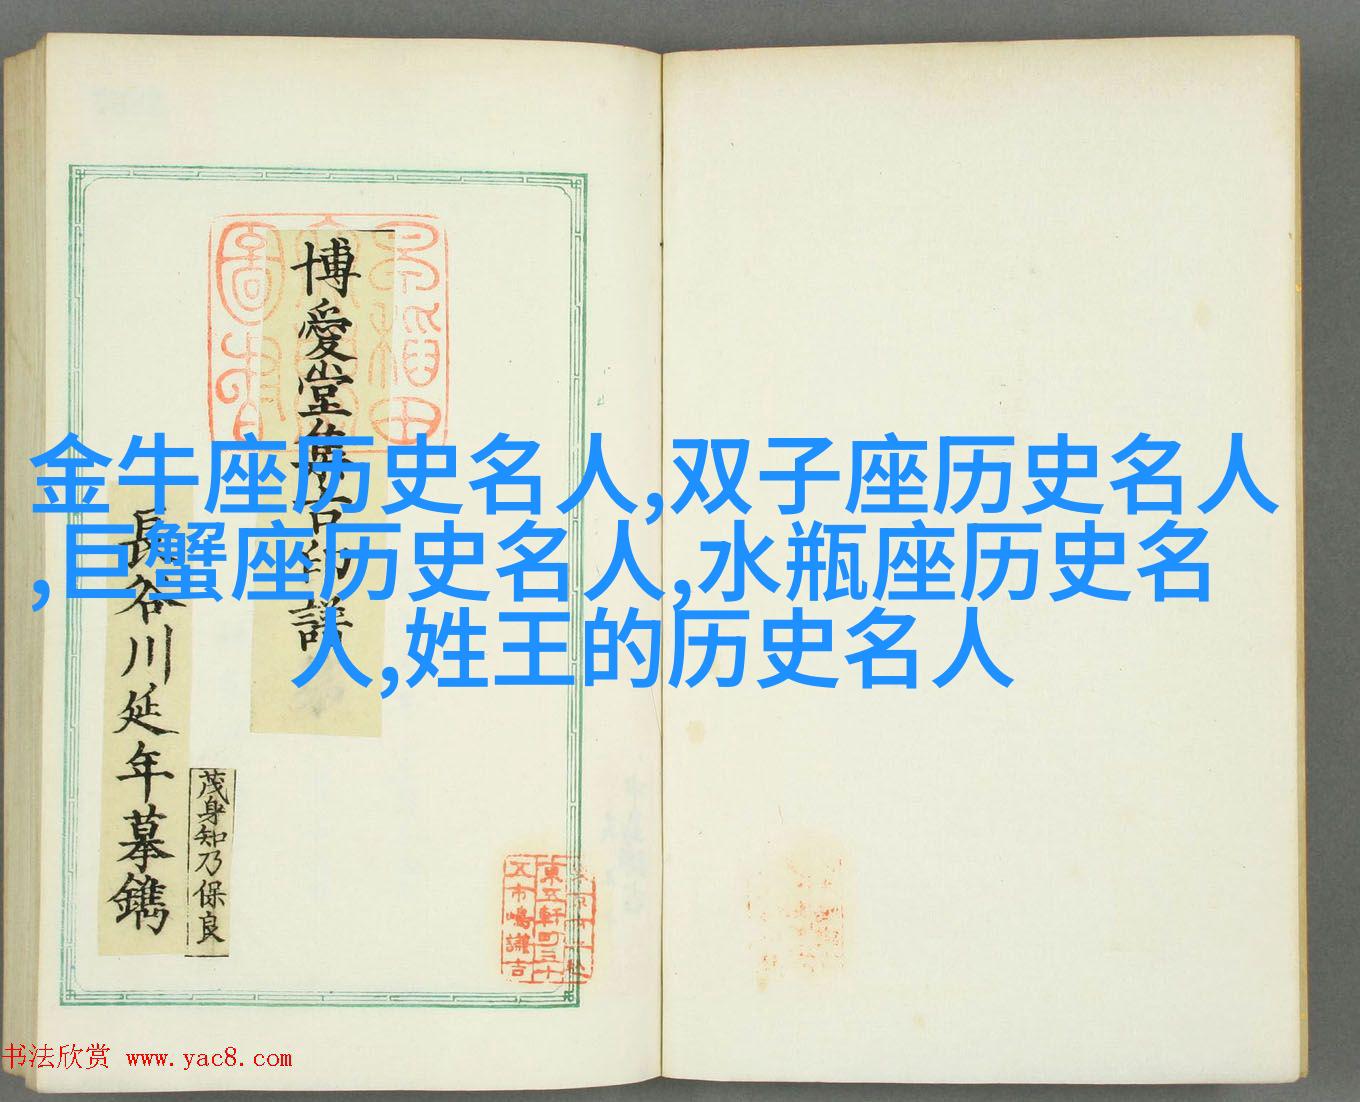 博愛堂集古印譜
長谷川延年摹鐫
茂身知乃保良
金牛座历史名人,双子座历史名人
,巨蟹座历史名人,水瓶座历史名
人,姓王的历史名人
東五軒町三十
五市嶋謙吉
书法欣赏 www.yac8.com